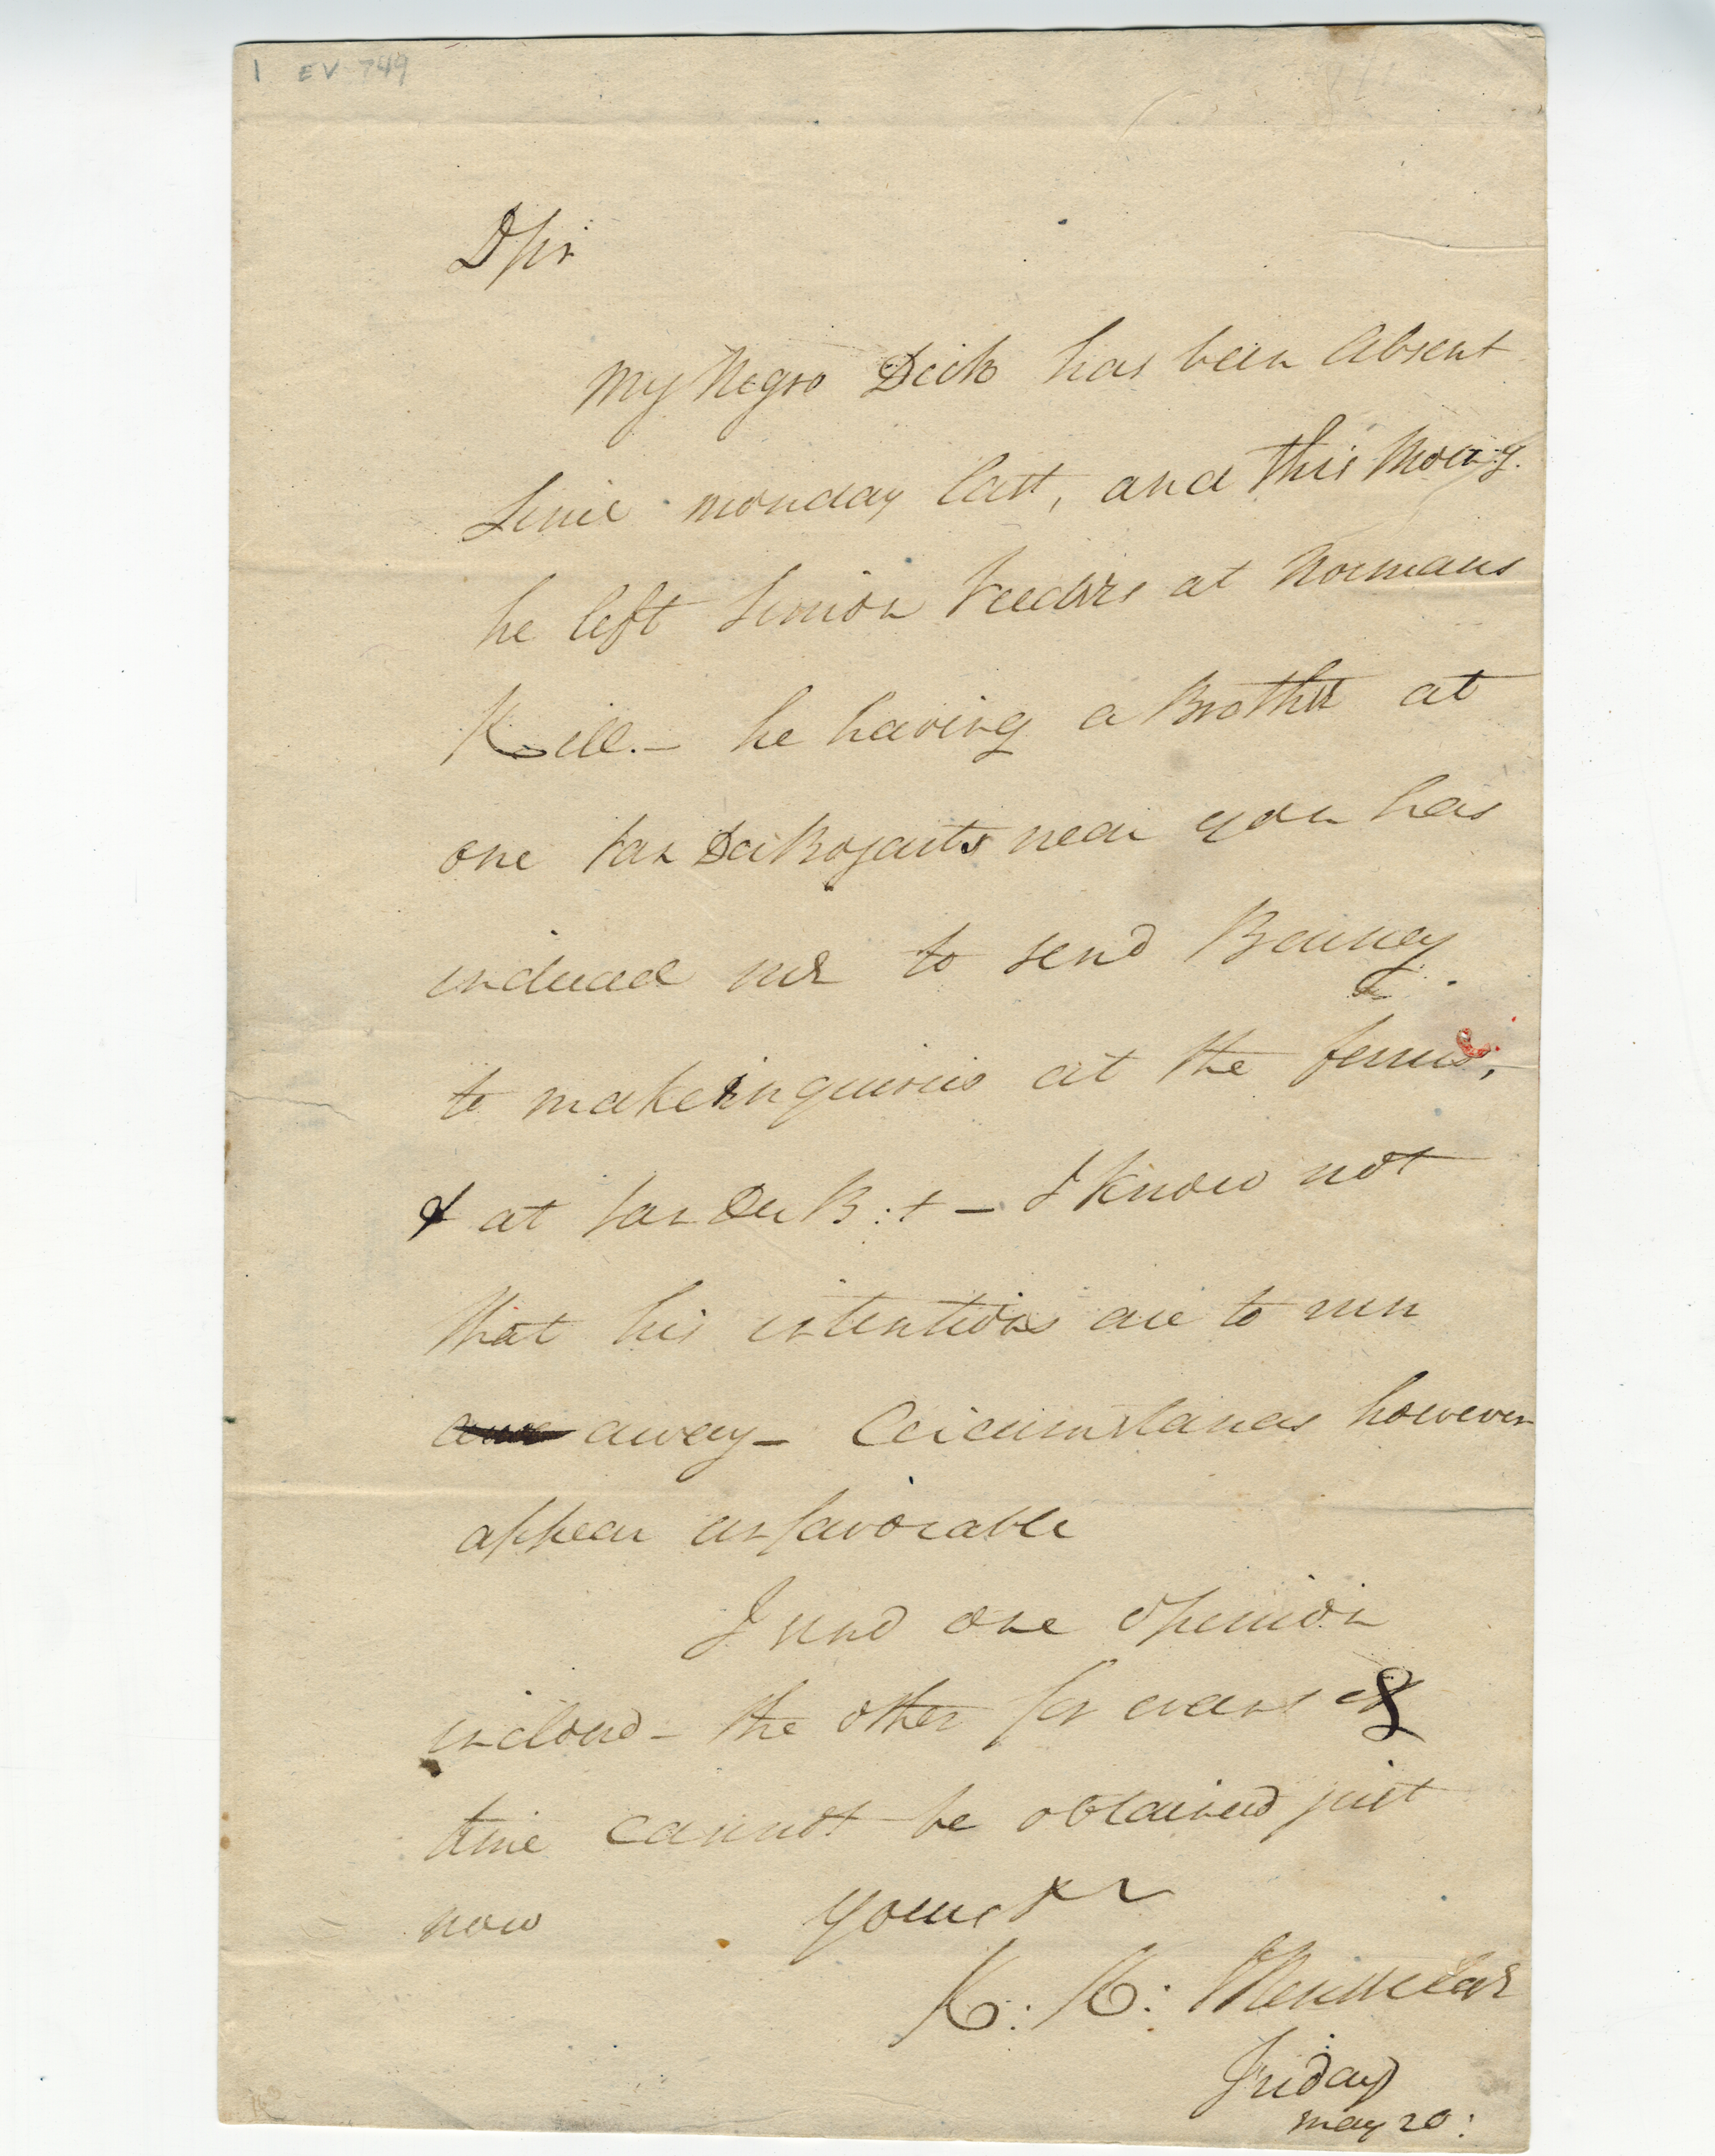 1 EV 749
D Sir
My Negro Dick has been Absent
Since monday last, and this Morng.
he left Simon Veeders at Normans
Kill. — he having a Brother at
one Van Der Bogarts near you has
induced me to send Benney
to make inquiries at the ferries,
& at Van Der B:t — I know not
that his intentions are to run
away — Circumstances however
appear unfavorable
I send one opinion
inclosed — the other for want of
time cannot be obtained just
now yours &c
K. K: Van Rensselaer
Friday
may 20: